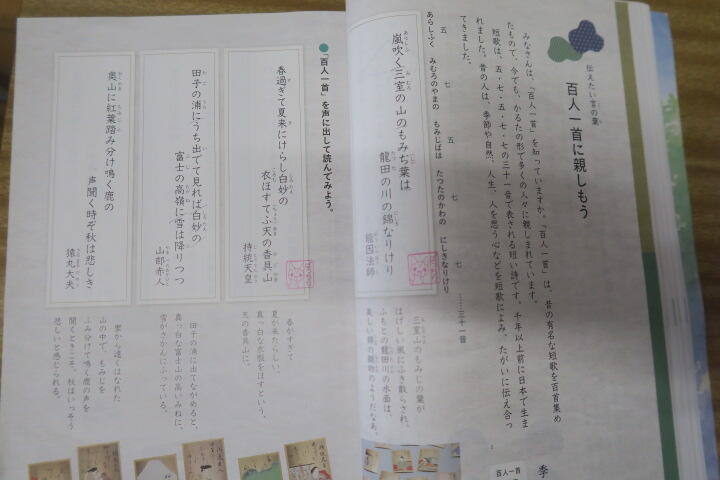 伝えたい言の葉
百人一首に親しもう
みなさんは、「百人一首」を知っていますか。「百人一首」は、昔の有名な短歌を百首集め
たもので、今でも、かるたの形で多くの人々に親しまれています。
短歌は、五・七・五・七・七の三十一音で表される短い詩です。千年以上前に日本で生ま
れました。昔の人は、季節や自然、人生、人を思う心などを短歌によみ、たがいに伝え合っ
てきました。
五 七 五 七 七
あらしふく みむろのやまの もみじばは たつたのかわの にしきなりけり ……三十一音
嵐吹く三室の山のもみぢ葉は
龍田の川の錦なりけり
能因法師
三室山のもみじの葉が
はげしい風にふき散らされ、
ふもとの龍田川の水面は、
美しい錦の織物のようだなあ。
●「百人一首」を声に出して読んでみよう。
春過ぎて夏来にけらし白妙の
衣ほすてふ天の香具山
持統天皇
春がすぎて
夏が来たらしい。
真っ白な衣服をほすという、
天の香具山に。
田子の浦にうち出でて見れば白妙の
富士の高嶺に雪は降りつつ
山部赤人
田子の浦に出てながめると、
真っ白な富士山の高いみねに、
雪がさかんにふっている。
奥山に紅葉踏み分け鳴く鹿の
声聞く時ぞ秋は悲しき
猿丸大夫
里から遠くはなれた
山の中で、もみじを
ふみ分けて鳴く鹿の声を
聞くときこそ、秋はいっそう
悲しいと感じられる。
百人一首
季